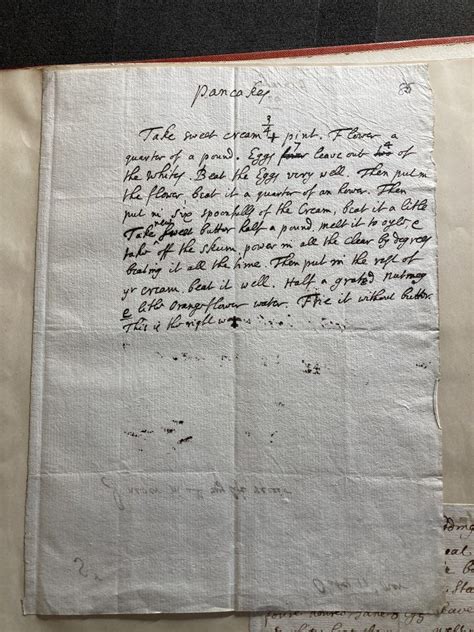 Pancakes
Take sweet cream 3/4 pint. Flower a
quarter of a pound. Eggs four 7 leave out two 4 of
the whites. Beat the Eggs very well. Then put in
the flower beat it a quarter of an hower. Then
put in six spoonfulls of the Cream, beat it a litle
Take new sweet butter half a pound melt it to oyle, &
take off the skum, power in all the clear by degrees
beating it all the time. Then put in the rest of
yr cream beat it well. Half a grated nutmeg
& litle Orangeflower water. Frie it without butter.
This is the right way